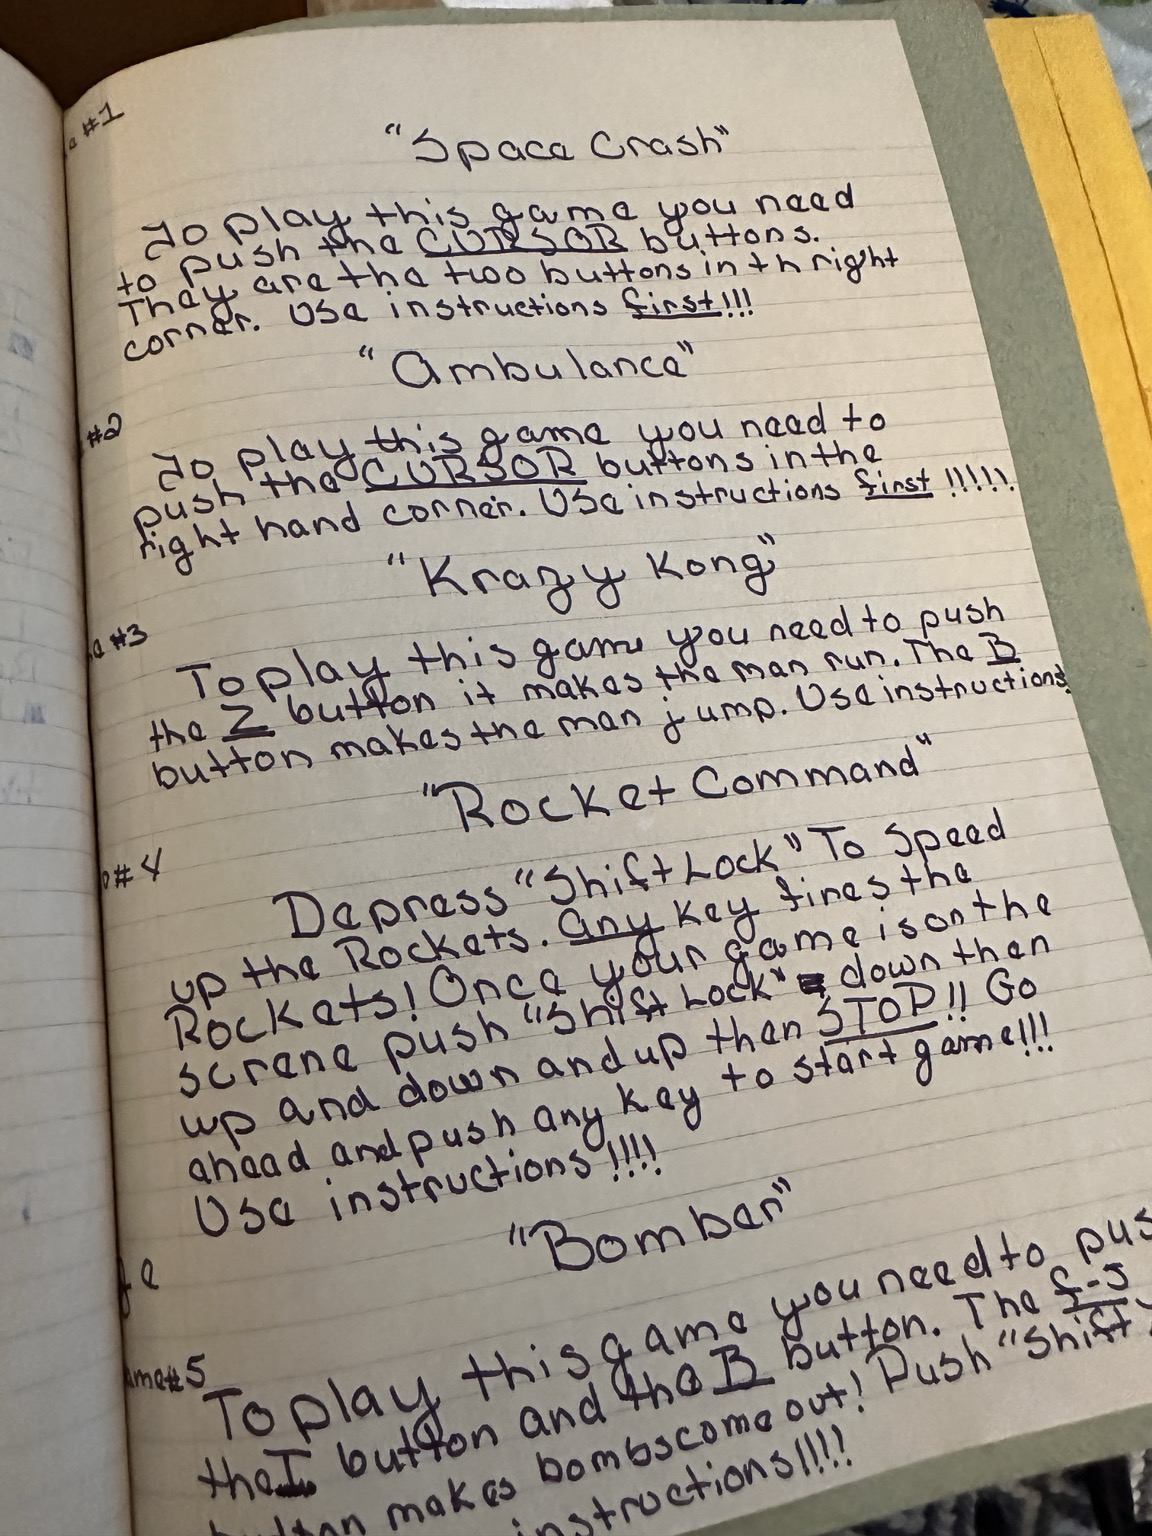 #1
"Space Crash"
To play this game you need
to push the CURSOR buttons.
They are the two buttons in th right
corner. Use instructions first!!!
"Ambulance"
#2
To play this game you need to
push the CURSOR buttons in the
right hand corner. Use instructions first !!!!!
"Krazy Kong"
#3
To play this game you need to push
the Z button it makes the man run. The B
button makes the man jump. Use instructions!
"Rocket Command"
#4
Depress "Shift Lock" To Speed
up the Rockets. any key fires the
Rockets! Once your game is on the
screne push "Shift Lock" down then
up and down and up then STOP!! Go
ahead and push any key to start game!!!
Use instructions!!!!
"Bomber"
ame#5
To play this game you need to pus
the button and the B button. The f-5
button makes bombs come out! Push "Shift
instructions!!!!